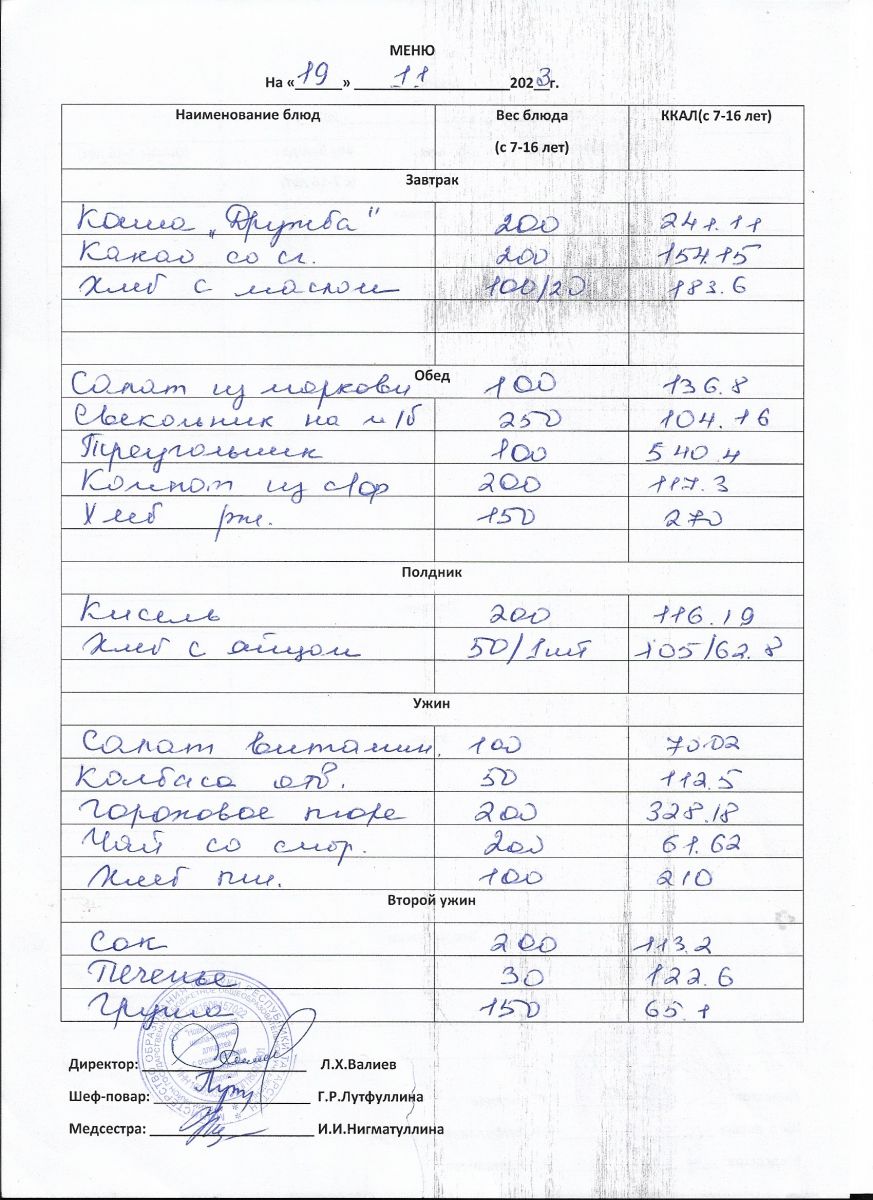 МЕНЮ
На «19» 11 2023г.
Наименование блюд Вес блюда (с 7-16 лет) ККАЛ(с 7-16 лет)
Завтрак
Каша „Дружба" 200 241.11
Какао со сг. 200 154.15
Хлеб с маслом 100/20 183.6
Обед
Салат из моркови 100 136.8
Свекольник на м/б 250 104.16
Треугольник 100 540.4
Компот из с/ф 200 117.3
Хлеб рж. 150 270
Полдник
Кисель 200 116.19
Хлеб с яйцом 50/1шт 105/62.8
Ужин
Салат витамин. 100 70.02
Колбаса отв. 50 112.5
Гороховое пюре 200 328.18
Чай со смор. 200 61.62
Хлеб пш. 100 210
Второй ужин
Сок 200 113.2
Печенье 30 122.6
Груша 150 65.1
Директор: Л.Х.Валиев
Шеф-повар: Г.Р.Лутфуллина
Медсестра: И.И.Нигматуллина